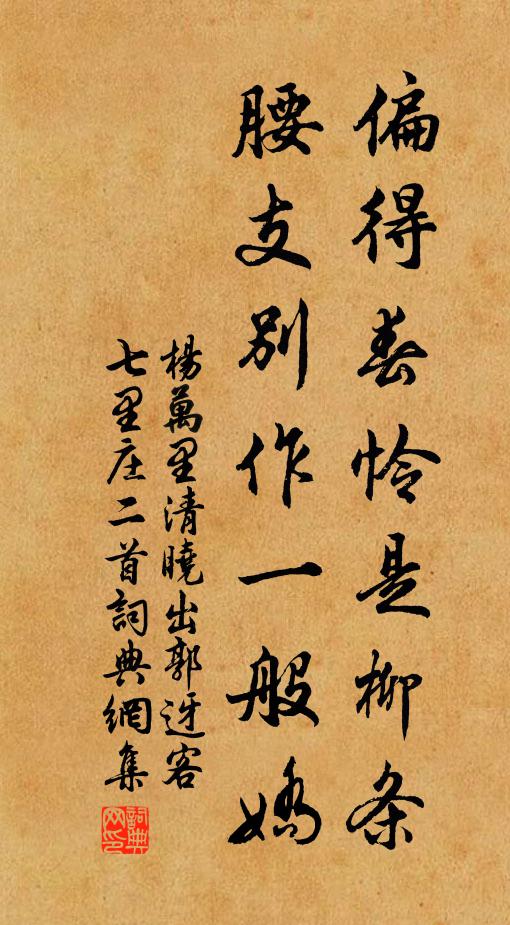 偏得春怜是柳条
腰支别作一般娇
楊萬里清曉出郭迓客
七里庄二首詞典網集
詞典
网印